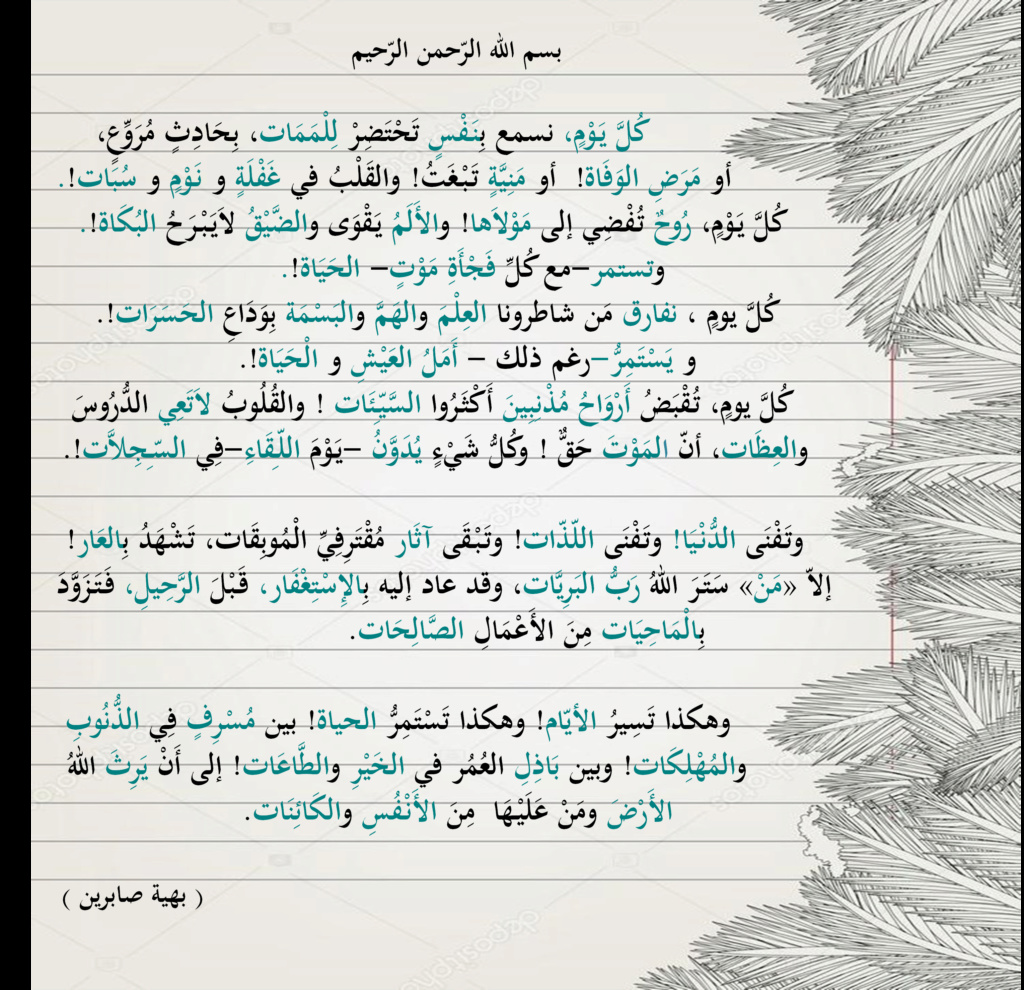 بسم الله الرّحمن الرّحيم
كُلَّ يَوْمٍ، نسمع بِنَفْسٍ تَحْتَضِرْ لِلْمَمَات، بِحَادِثٍ مُرَوِّعٍ،
أو مَرَضِ الوَفَاة! أو مَنِيَّةٍ تَبْغَتُ! والقَلْبُ في غَفْلَةٍ و نَوْمٍ و سُبَات!.
كُلَّ يَوْمٍ، رُوحٌ تُفْضِي إلى مَوْلاَها! والأَلَمُ يَقْوَى والضَّيْقُ لاَيَبْرَحُ البُكَاة!.
وتستمر –مع كُلِّ فَجْأَةِ مَوْتٍ– الحَيَاة!.
كُلَّ يومٍ ، نفارق مَن شاطرونا العِلْمَ والهَمَّ والبَسْمَة بِوَدَاعِ الحَسَرَات!.
و يَسْتَمِرُّ –رغم ذلك – أَمَلُ العَيْشِ و الْحَيَاة!.
كُلَّ يومٍ، تُقْبَضُ أَرْوَاحُ مُذْنِبِينَ أَكْثَرُوا السَّيِّئَات ! والقُلُوبُ لاَتَعِي الدُّرُوسَ
والعِظَات، أنّ المَوْتَ حَقٌّ ! وكُلُّ شَيْءٍ يُدَوَّنُ –يَوْمَ اللّقَاءِ–فِي السّجِلاَّت!.
وتَفْنَى الدُّنْيَا! وتَفْنَى اللّذّات! وتَبْقَى آثَار مُقْتَرِفِيِّ الْمُوبِقَات، تَشْهَدُ بِالعَار!
إلاّ «مَنْ» سَتَرَ اللهُ رَبُّ البَرِيَّات، وقد عاد إليه بِالإِسْتِغْفَار، قَبْلَ الرَّحِيلِ، فَتَزَوَّدَ
بِالْمَاحِيَات مِنَ الأَعْمَالِ الصَّالِحَات.
وهكذا تَسِيرُ الأيّام! وهكذا تَسْتَمِرُّ الحياة! بين مُسْرِفٍ فِي الذُّنُوبِ
والمُهْلِكَات! وبين بَاذِلِ العُمُر في الخَيْرِ والطَّاعَات! إلى أَنْ يَرِثَ اللهُ
الأَرْضَ ومَنْ عَلَيْهَا مِنَ الأَنْفُسِ والكَائِنَات.
( بهية صابرين )